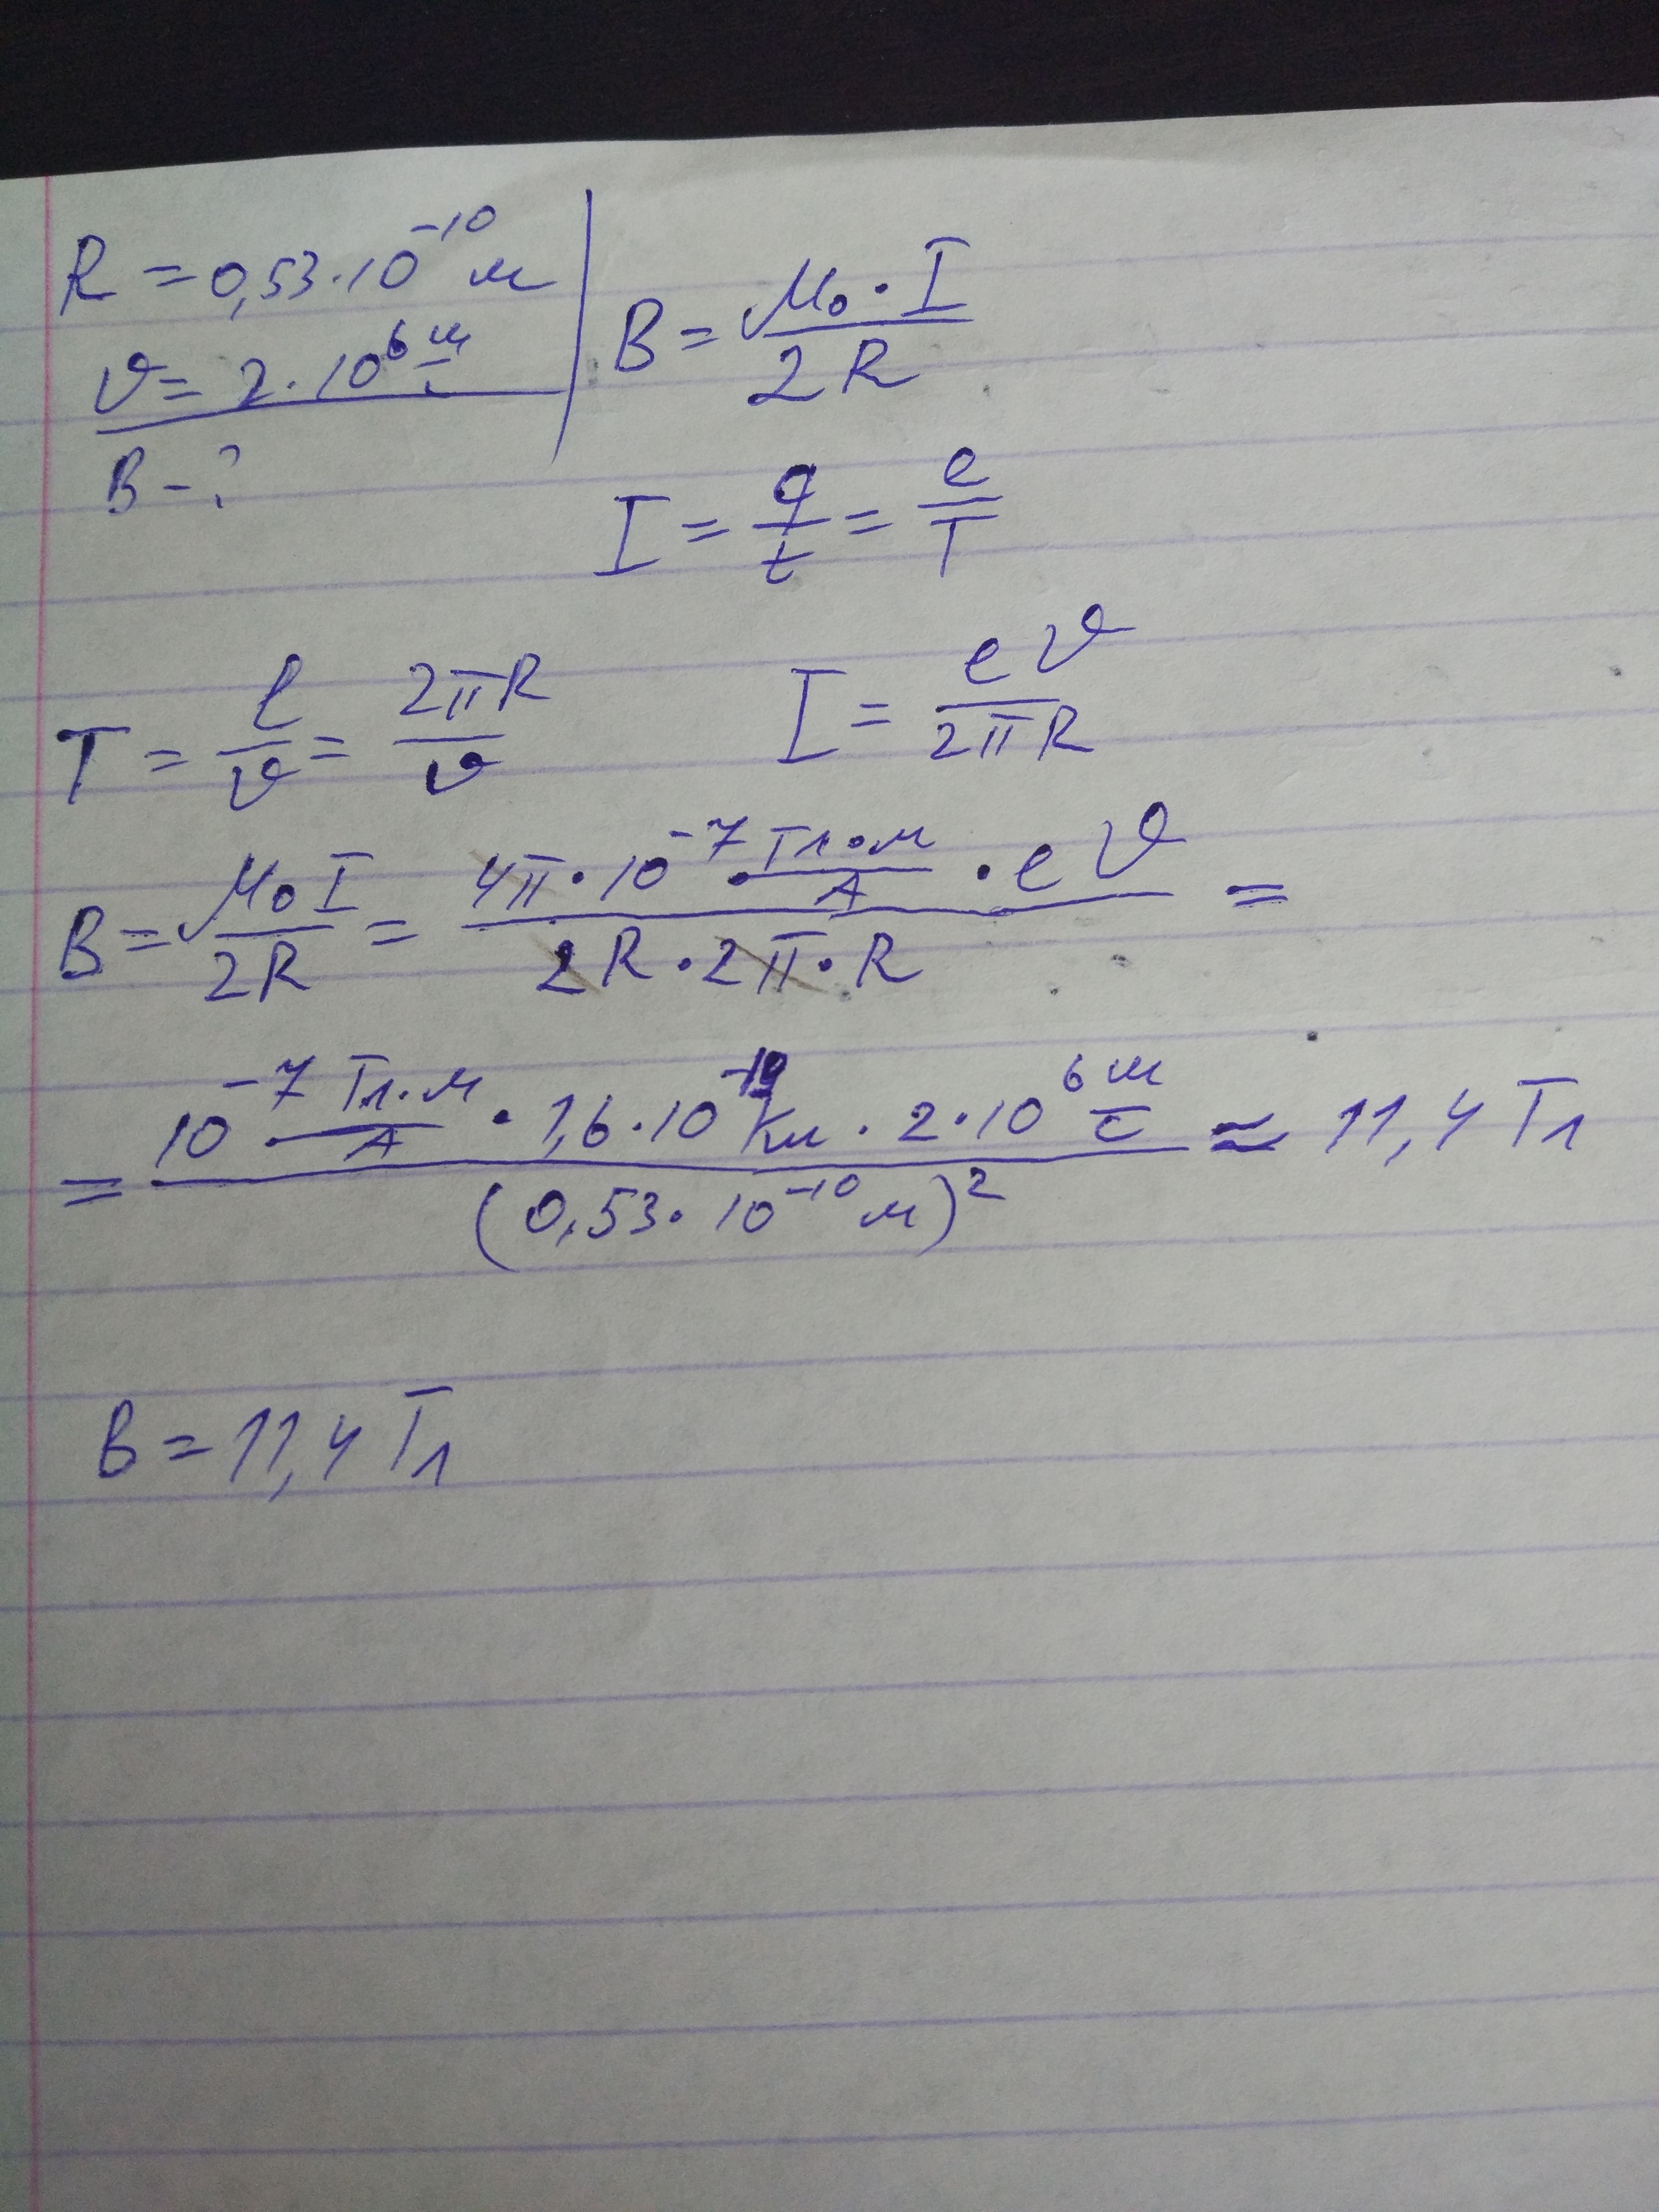 R = 0,53·10⁻¹⁰ м
υ = 2·10⁶ м/с
B - ?
B = μ₀·I / 2R
I = q/t = e/T
T = ℓ/υ = 2πR/υ
I = eυ / 2πR
B = μ₀I / 2R = 4π·10⁻⁷ · Тл·м/А · eυ / 2R·2π·R =
= 10⁻⁷ · Тл·м/А · 1,6·10⁻¹⁹ Кл · 2·10⁶ м/с / (0,53·10⁻¹⁰ м)² ≈ 11,4 Тл
B = 11,4 Тл